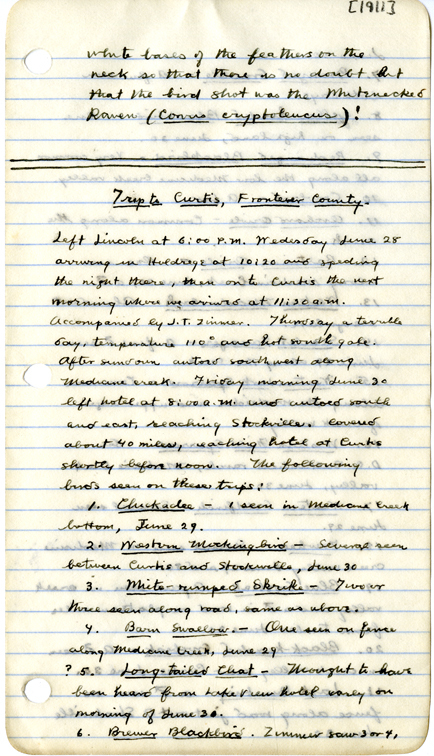 [1911]
white bases of the feathers on the
neck so that there is no doubt but
that the bird shot was the Whitenecked
Raven (Corvus cryptoleucus)!
Trip to Curtis, Frontier County.
Left Lincoln at 6:00 P.M. Wedesday June 28
arriving in Holdrege at 10:20 and speding
the night there, then on to Curtis the next
morning where we arrived at 11:30 a.m.
Accompanied by J.T. Zimmer. Thursday a terrible
day, temperature 110° and hot south gale.
After sundown autoed southwest along
Medicine creek. Friday morning June 30
left hotel at 8:00 a.m. and autoed south
and east, reaching Stockville. Covered
about 40 miles, reaching hotel at Curtis
shortly before noon. The following
birds seen on these trips:
1. Chickadee - 1 seen in Medicine Creek
bottom, June 29.
2. Western Mockingbird - Several seen
between Curtis and Stockville, June 30
3. White-rumped Shrike - Two or
three seen along road, same as above.
4. Barn Swallow. - One seen on fence
along Medicine Creek, June 29
? 5. Long-tailed Chat - Thought to have
been heard from Lake View hotel early on
morning of June 30.
6. Brewer Blackbird. Zimmer saw 3 or 4,